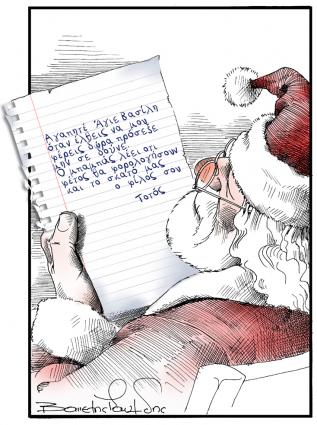 Αγαπητέ Άγιε Βασίλη
όταν έλθεις να μου
φέρεις δώρα πρόσεξε
μην σε δούνε.
Ο μπαμπάς λέει οτι
μέσα θα φορολογήσουν
και το σκατό μας
ο φίλος σου
Τοτός